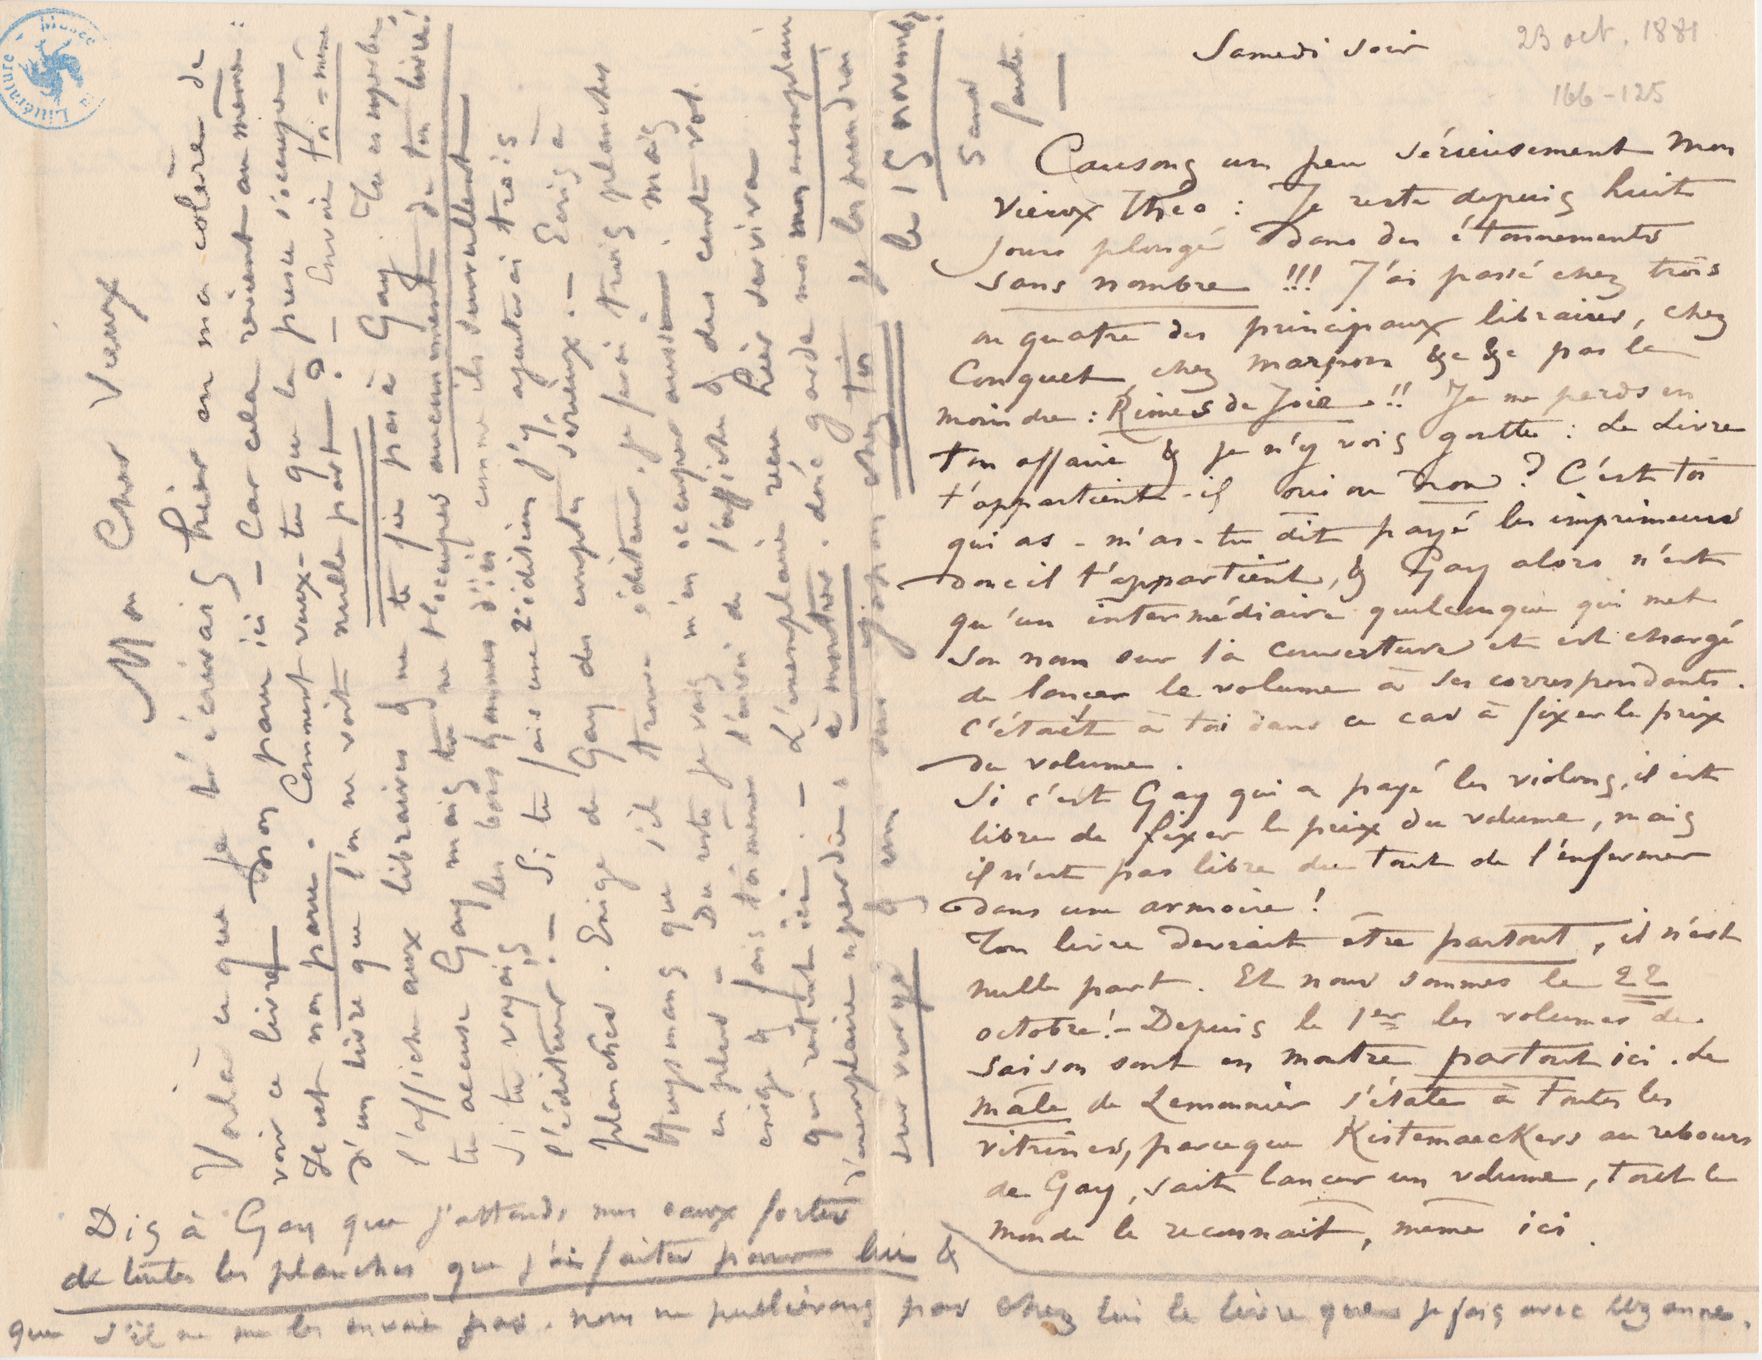 Samedi soir
23 oct. 1881
166-125
Causons un peu sérieusement mon
vieux Théo : Je reste depuis huit
jours plongé dans des étonnements
sans nombre !!! J'ai passé chez trois
ou quatre des principaux libraires, chez
Conquet, chez Marpon &c &c pas le
moindre : Rimes de Joie !! Je me perds en
ton affaire & je n'y vois goutte : Le Livre
t'appartient-il oui ou non ? C'est toi
qui as - m'as-tu dit payé les imprimeurs
donc il t'appartient, & Gay alors n'est
qu'un intermédiaire quelconque qui met
son nom sur la couverture et est chargé
de lancer le volume à ses correspondants.
C'était à toi dans ce cas à fixer le prix
du volume.
Si c'est Gay qui a payé les violons, il est
libre de fixer le prix du volume, mais
il n'est pas libre du tout de l'enfermer
dans une armoire !
Ton livre devrait être partout, il n'est
nulle part. Et nous sommes le 22
octobre ! - Depuis le 1er les volumes de
saison sont en montre partout ici. Le
mâle de Lemonnier s'étale à toutes les
vitrines, parceque Kistemaeckers au rebours
de Gay, sait lancer un volume, tout le
monde le reconnait, même ici.
Mon Cher Vieux
Voilà ce que je t'écrivais hier en ma colère de
voir ce livre non paru ici - Car cela revient au même :
Il est non paru. Comment veux-tu que la presse s'occupe
d'un livre que l'on ne voit nulle part ? - Envoie toi-même
l'affiche aux libraires & ne te fie pas à Gay. Tu es superbe
tu accuse Gay mais tu ne t'occupes aucunement de ton livre !
Si tu voyais les bons hommes d'ici comme ils surveillent
l'éditeur ! - Si tu fais une 2e édition j'y ajouterai trois
planches. Exige de Gay des comptes sérieux. - Ecris à
Huysmans que s'il trouve éditeur, je ferai trois planches
en plus - Du reste je vais m'en occuper aussi. mais
exige & fais toi même l'envoi de l'affiche & des cent vol.
qui restent ici. - L'exemplaire reçu hier servira
d'exemplaire "perdu" à montrer. donc garde moi mon exemplaire
sur vergé & un sur japon chez toi je les prendrai
le 15 novembre
sans faute.
Dis à Gay que j'attends mes eaux fortes
de toutes les planches que j'ai faites pour lui &
que s'il ne me les envoie pas. nous ne publierons pas chez lui le livre que je fais avec Uzanne.